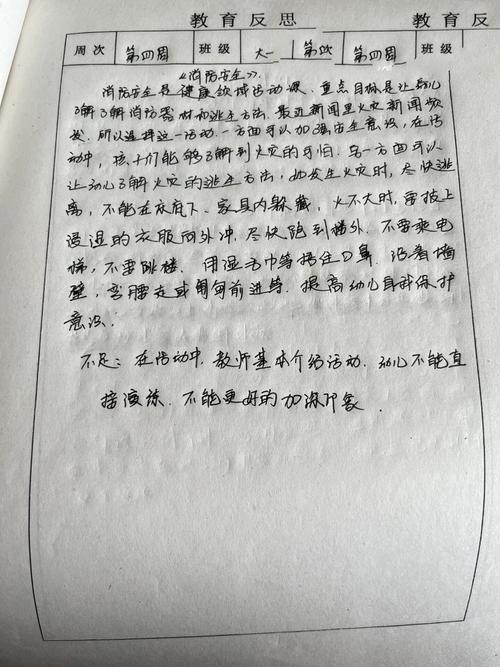 教育反思
教育反
周次 第四周 班级 大一 第次 第四周 班级
《消防安全》.
消防安全是健康领域活动课.重点目标是让幼儿
了解了解消防器材和逃生方法.最近新闻里火灾新闻频
发.所以选择这一活动.一方面可以加强安全意识,在活
动中,孩子们能够了解到火灾的可怕.另一方面可以
让幼儿了解火灾的逃生方法,如发生火灾时,尽快逃
离,不能在衣底下、家具内躲藏,火不大时,需披上
浸湿的衣服向外冲.尽快跑到楼外.不要乘电
梯,不要跳楼.用湿毛巾等捂住口鼻.沿着墙
壁,弯腰走或匍匐前进等.提高幼儿自我保护
意识.
不足:在活动中,教师基本介绍活动.幼儿不能直
接演练.不能更好的加深印象.